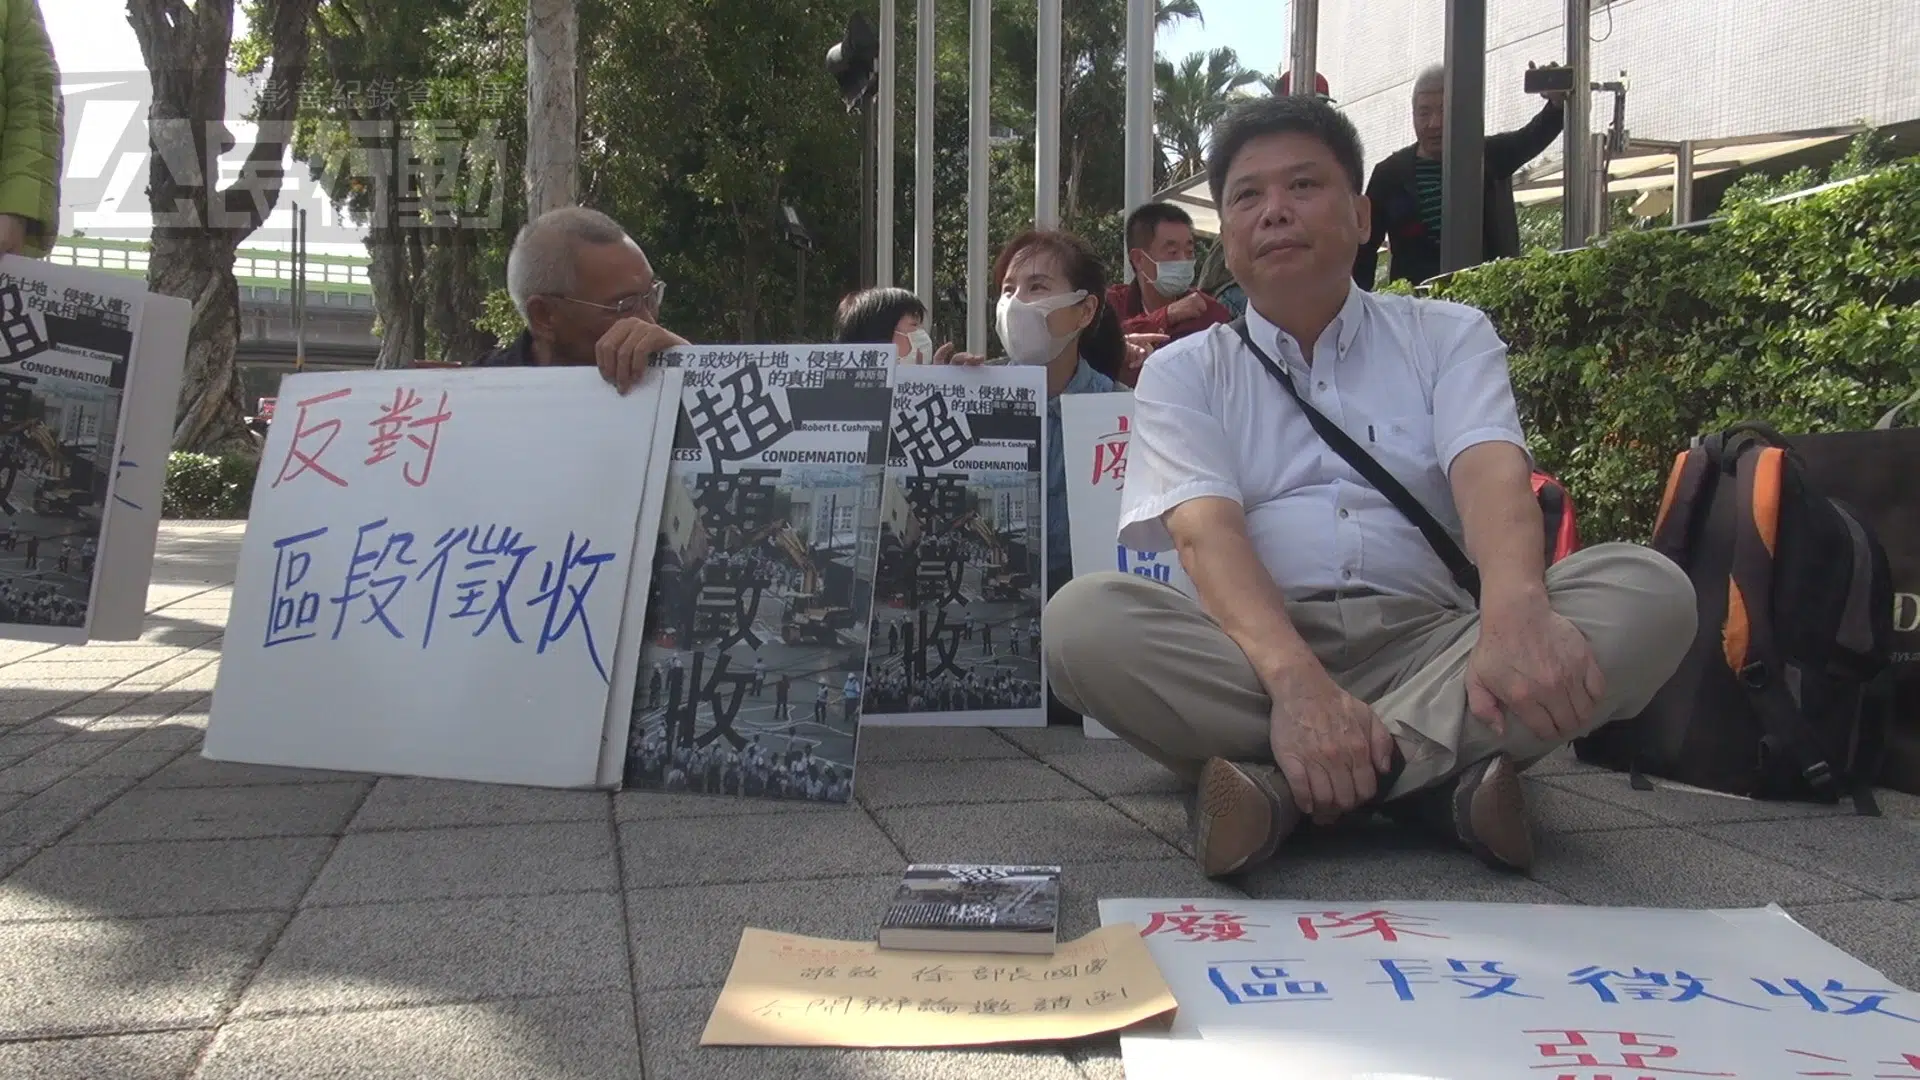 影音紀錄資料庫
公民行動
作土地、侵害人權?
的真相
超
Robert E. Cushman
CONDEMNATION
反對
區段徵收
計畫?或炒作土地、侵害人權?
徵收 的真相 羅伯・庫斯曼
超
Robert E. Cushman
CESS CONDEMNATION
額
徵
收
或炒作土地、侵害人權?
收 的真相 羅伯・庫斯曼
超
Robert E. Cushman
CESS CONDEMNATION
額
徵
收
廢
區
超
敬致 徐部長國勇
公開辯論邀請函
廢除
區段徵收
惡法